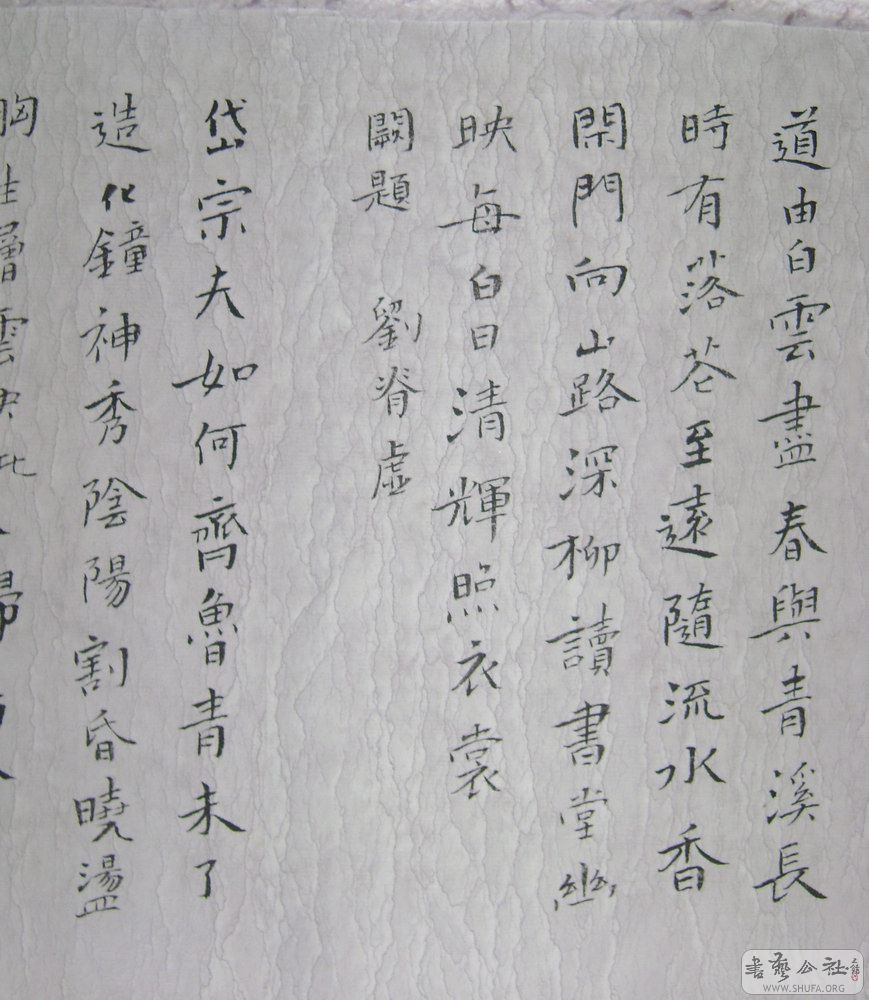 道由白雲盡春與青溪長
時有落花至遠隨流水香
閑門向山路深柳讀書堂幽
映每白日清輝照衣裳
闕題 劉脊虛
岱宗夫如何齊魯青未了
造化鐘神秀陰陽割昏曉盪
胸生層雲
書藝公社
WWW.SHUFA.ORG